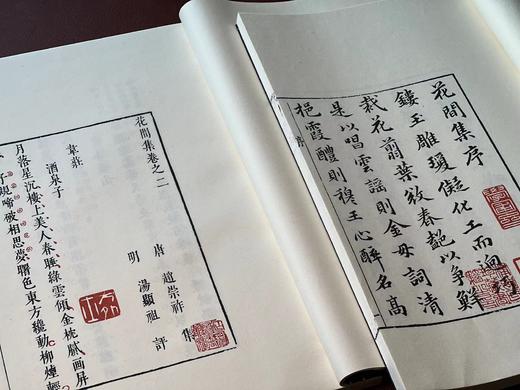 花間集序
鏤玉雕瓊儗化工而迥巧
裁花翦葉敚春艷以爭鮮
是以唱雲謠則金母詞清
挹霞醴則穆王心醉名高
序
花間集卷之二
唐 趙崇祚 集
明 湯顯祖 評
韋莊
酒泉子
月落星沉樓上美人春睡綠雲傾金枕膩画屏
子規啼破相思夢曙色東方纔動柳煙輕